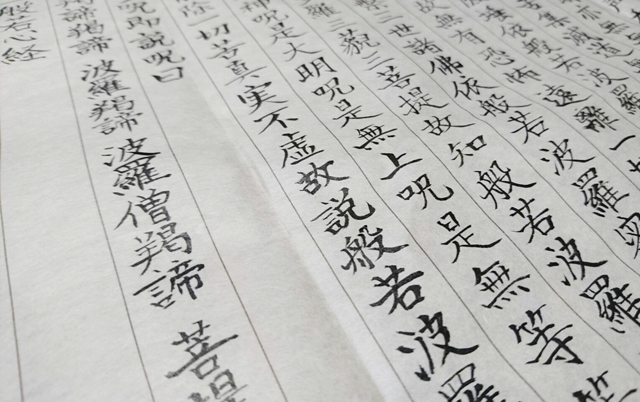 埵依般若波羅
故無有恐怖遠離一切
三世諸佛依般若波羅
羅三藐三菩提故知般若波羅
神呪是大明呪是無上呪是無等等
除一切苦真実不虚故説般若波羅
呪即説呪曰
羯諦羯諦 波羅羯諦 波羅僧羯諦 菩提
般若心経